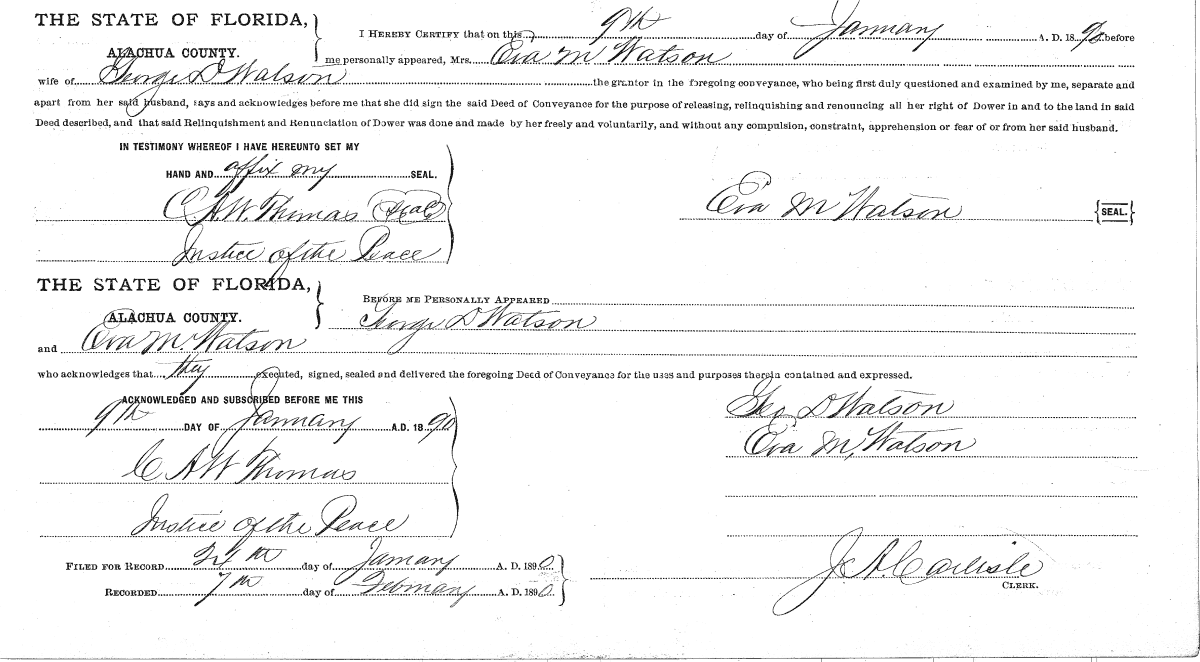 THE STATE OF FLORIDA,
ALACHUA COUNTY.
I HEREBY CERTIFY that on this 9th day of January A. D. 1890 before
me personally appeared, Mrs. Eva M Watson
wife of George D Watson the grantor in the foregoing conveyance, who being first duly questioned and examined by me, separate and
apart from her said husband, says and acknowledges before me that she did sign the said Deed of Conveyance for the purpose of releasing, relinquishing and renouncing all her right of Dower in and to the land in said
Deed described, and that said Relinquishment and Renunciation of Dower was done and made by her freely and voluntarily, and without any compulsion, constraint, apprehension or fear of or from her said husband.
IN TESTIMONY WHEREOF I HAVE HEREUNTO SET MY
HAND AND affix my SEAL.
C A W Thomas (Seal)
Justice of the Peace
Eva M Watson {SEAL.}
THE STATE OF FLORIDA,
ALACHUA COUNTY.
BEFORE ME PERSONALLY APPEARED
George D Watson
and Eva M. Watson
who acknowledges that they executed, signed, sealed and delivered the foregoing Deed of Conveyance for the uses and purposes therein contained and expressed.
ACKNOWLEDGED AND SUBSCRIBED BEFORE ME THIS
9th DAY OF January A.D. 1890
C A W Thomas
Justice of the Peace
Geo D Watson
Eva M, Watson
FILED FOR RECORD day of January A. D. 1890
RECORDED 7th day of February A. D. 1890
J A Carlisle
CLERK.